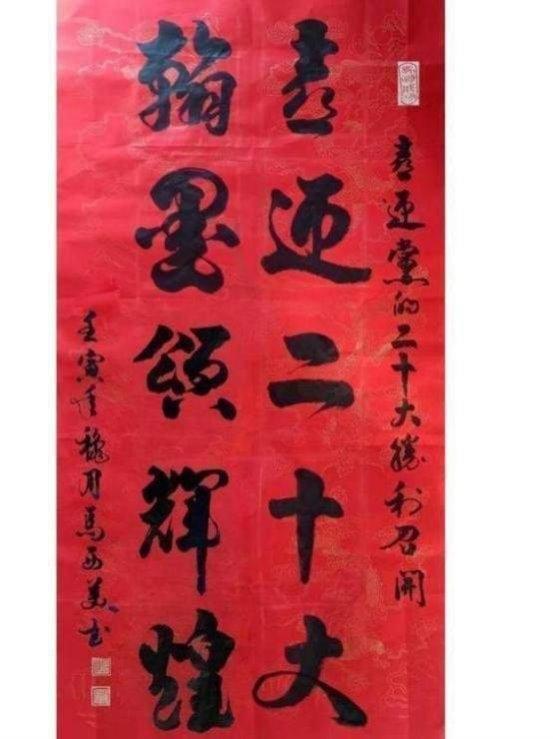 喜迎党的二十大胜利召開
喜迎二十大
翰墨頌輝煌
壬寅年穐月馬西美书